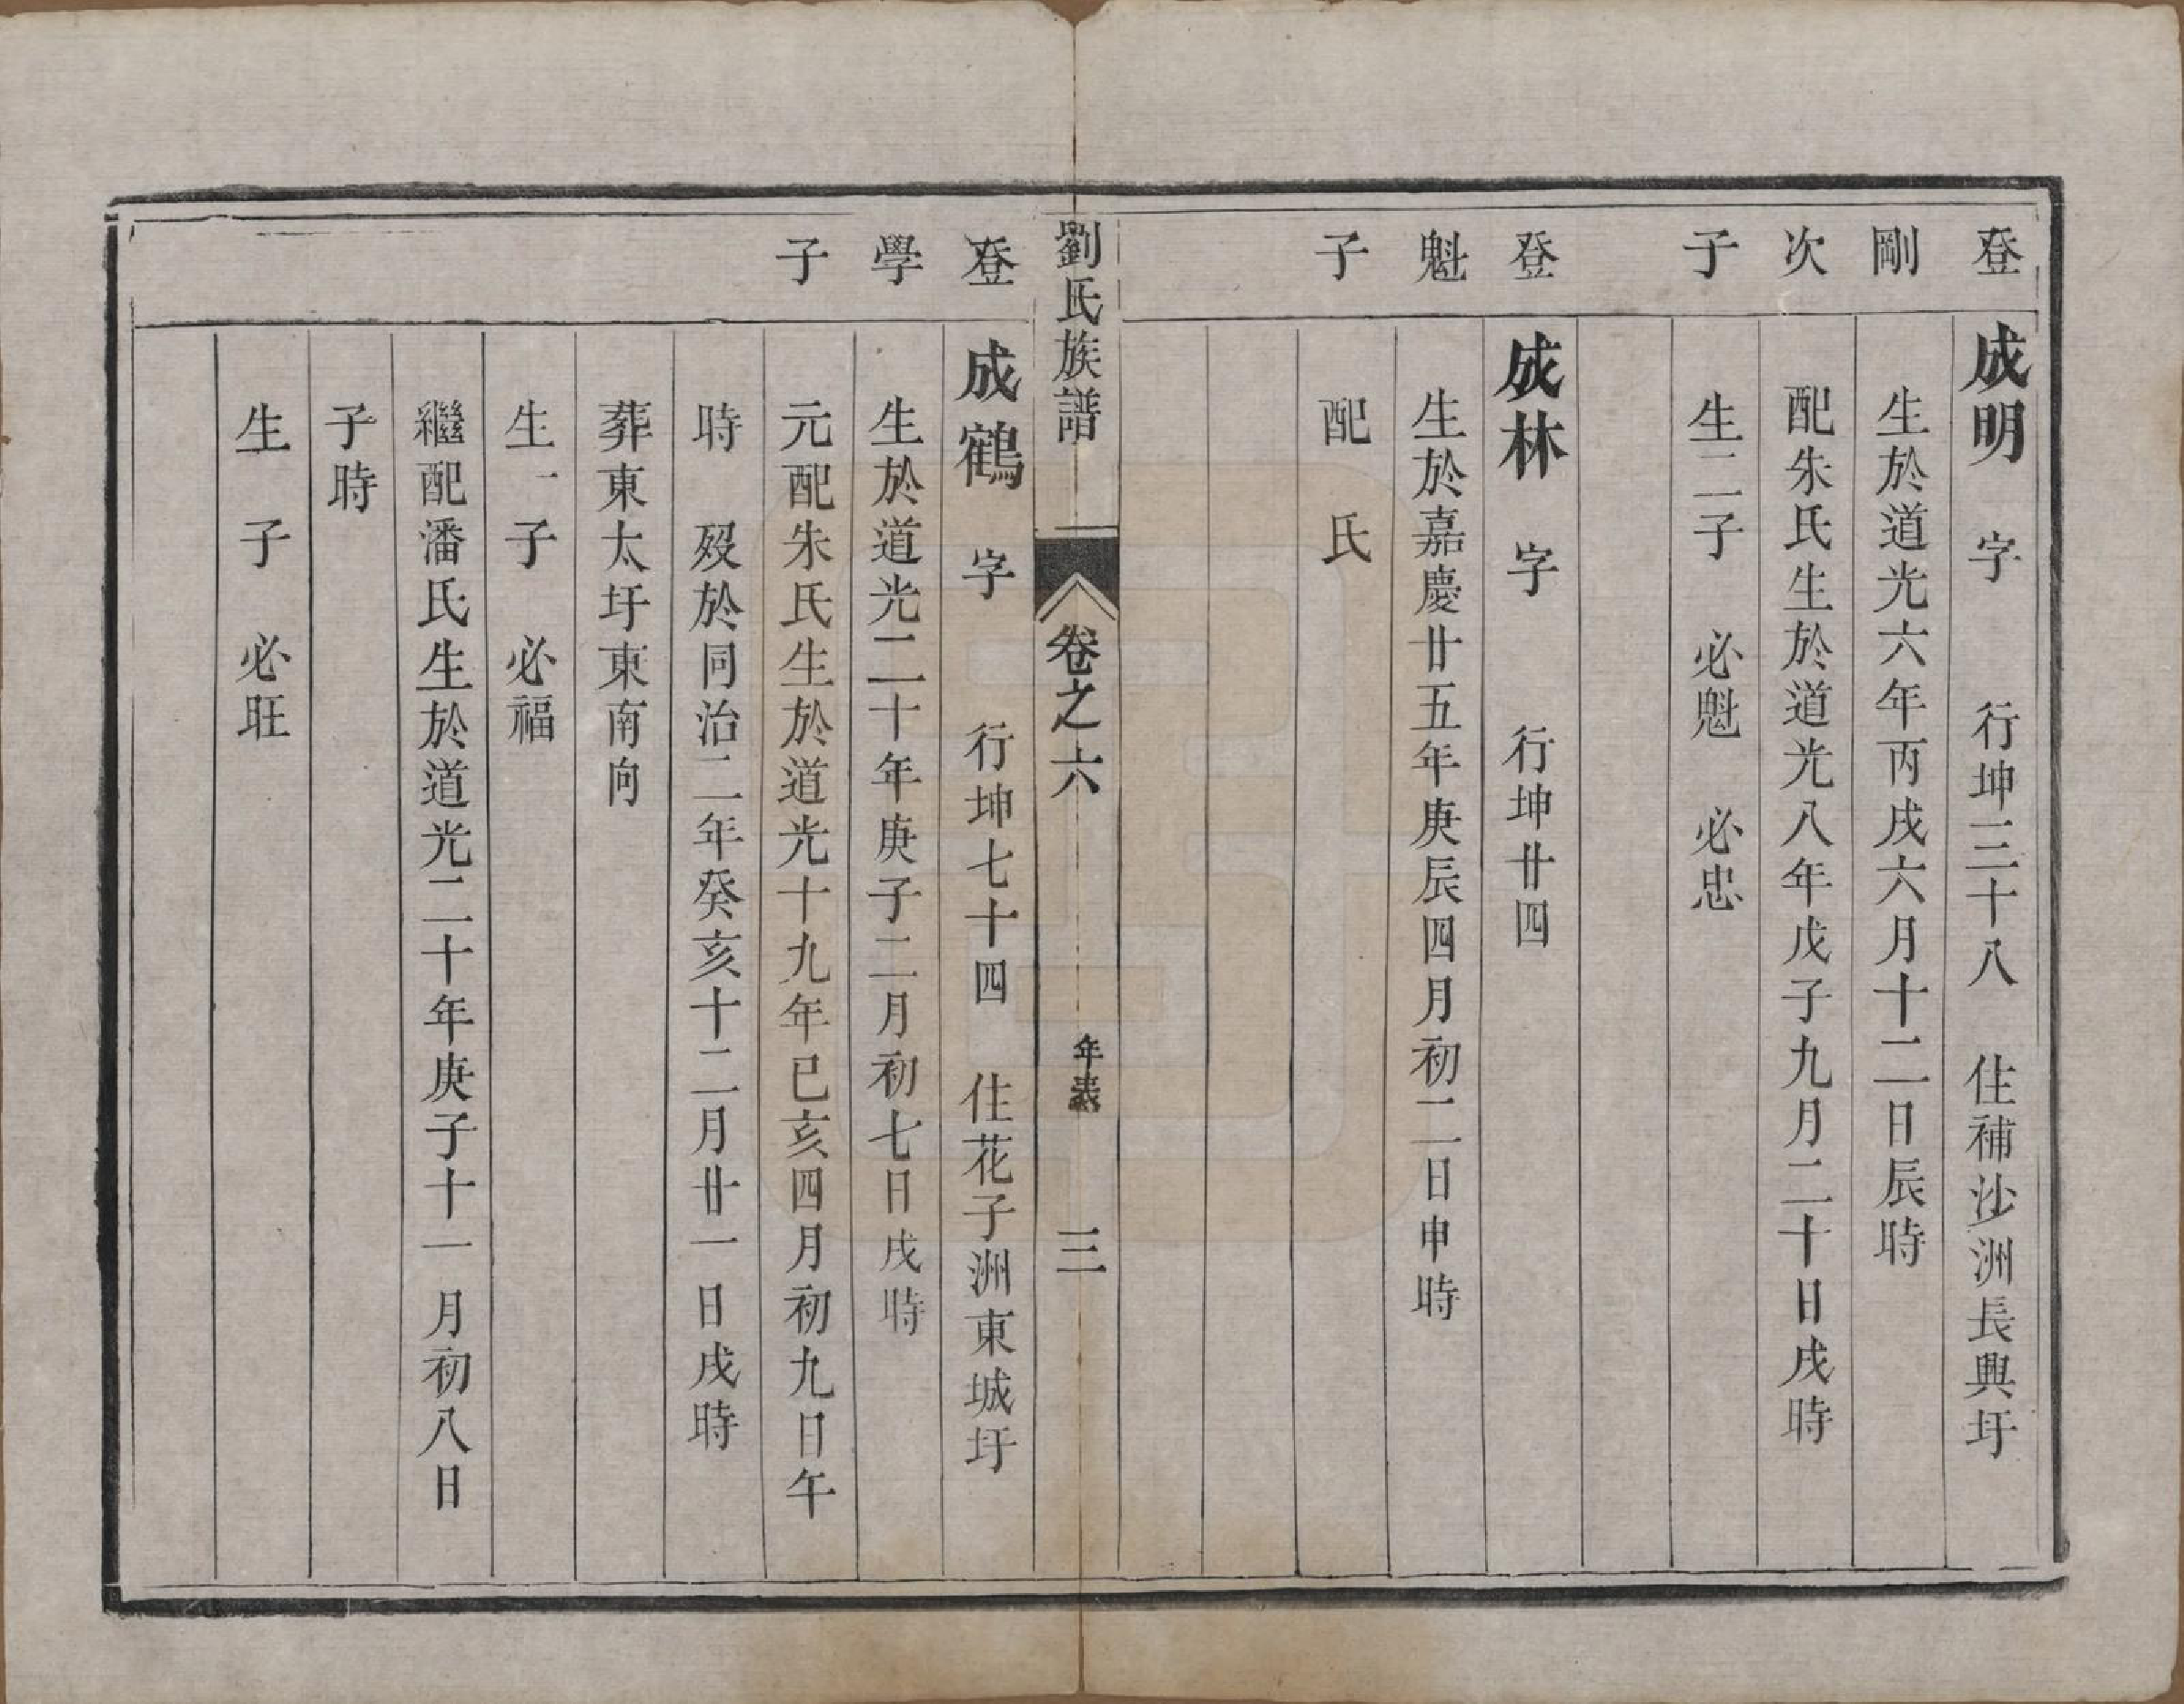 登剛次子
成明 字 行坤三十八 住補沙洲長興圩
生於道光六年丙戌六月十二日辰時
配朱氏生於道光八年戊子九月二十日戌時
生二子 必魁 必忠
登魁子
成林 字 行坤廿四
生於嘉慶廿五年庚辰四月初二日申時
配 氏
劉氏族譜 卷之六 年表 三
登學子
成鶴 字 行坤七十四 住花子洲東城圩
生於道光二十年庚子二月初七日戌時
元配朱氏生於道光十九年已亥四月初九日午
時 歿於同治二年癸亥十二月廿一日戌時
葬東太圩東南向
生一子 必福
繼配潘氏生於道光二十年庚子十一月初八日
子時
生 子 必旺